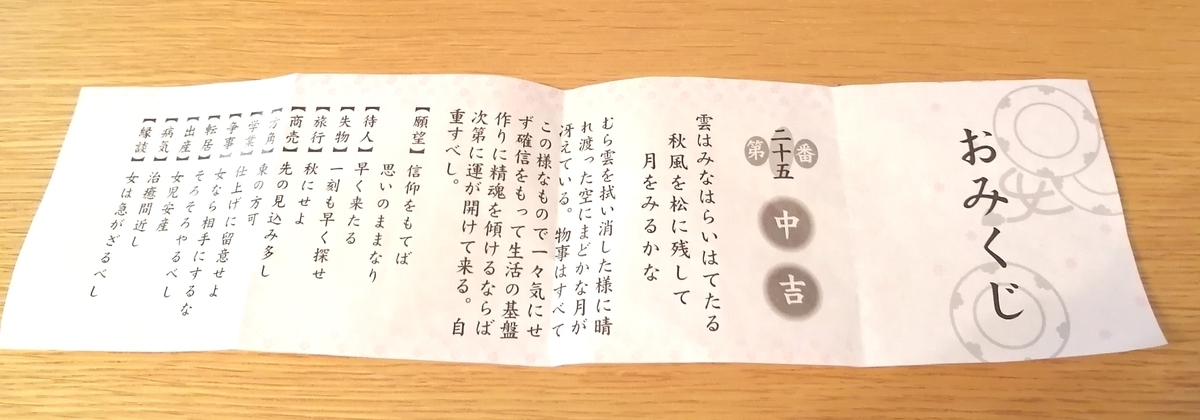 おみくじ
第二十五番
中吉
雲はみなはらいはてたる
秋風を松に残して
月をみるかな
むら雲を拭い消した様に晴
れ渡った空にまどかな月が
冴えている。物事はすべて
この様なもので一々気にせ
ず確信をもって生活の基盤
作りに精魂を傾けるならば
次第に運が開けて来る。自
重すべし。
【願望】信仰をもてば
思いのままなり
【待人】早く来たる
【失物】一刻も早く探せ
【旅行】秋にせよ
【商売】先の見込み多し
【方角】東の方可
【学業】仕上げに留意せよ
【争事】女なら相手にするな
【転居】そろそろやるべし
【出産】女児安産
【病気】治癒間近し
【縁談】女は急がざるべし